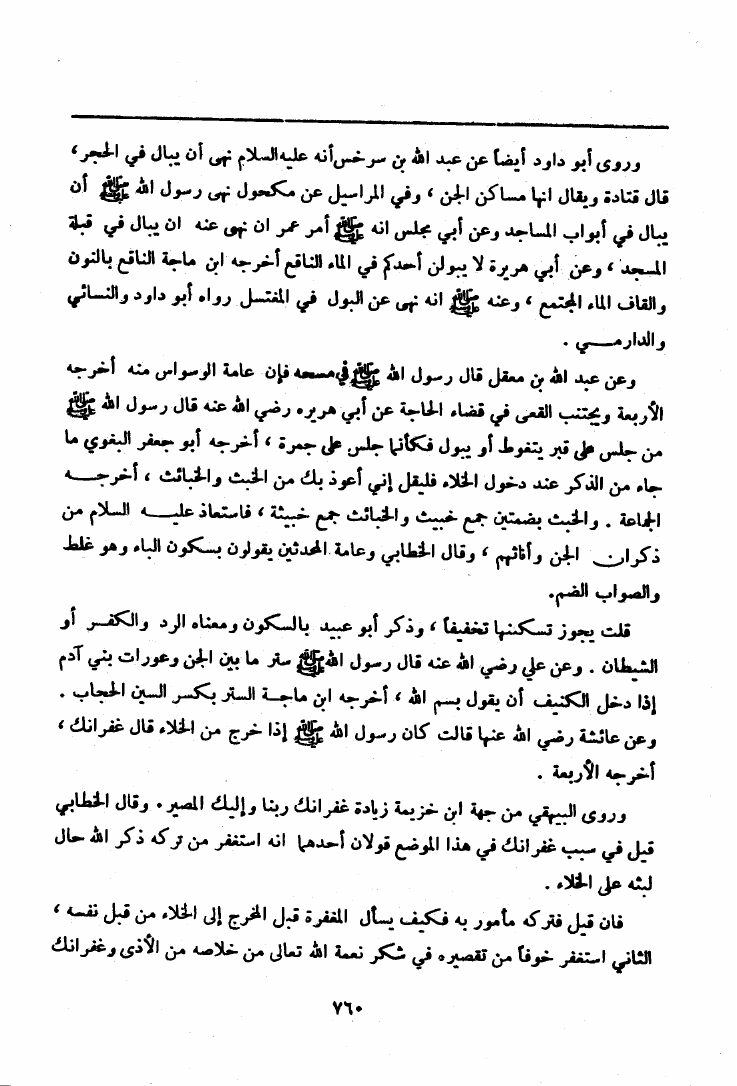 وروى أبو داود أيضاً عن عبد الله بن سرخس أنه عليه السلام نهى أن يبال في الحجر ،
قال قتادة ويقال انها مساكن الجن ، وفي المراسيل عن مكحول نهى رسول الله ﷺ أن
يبال في أبواب المساجد وعن أبي مجلس انه ﷺ أمر عمر ان نهى عنه ان يبال في قبلة
المسجد ، وعن أبي هريرة لا يبولن أحدكم في الماء الناقع أخرجه ابن ماجة الناقع بالنون
والقاف الماء المجتمع ، وعنه ﷺ انه نهى عن البول في المغتسل رواه أبو داود والنسائي
والدارمي .
وعن عبد الله بن معقل قال رسول الله ﷺ في فإن عامة الوسواس منه أخرجه
الأربعة ويجتنب القعى في قضاء الحاجة عن أبي هريره رضي الله عنه قال رسول الله ﷺ
من جلس على قبر يتغوط أو يبول فكأنما جلس على جمرة ، أخرجه أبو جعفر البغوي ما
جاء من الذكر عند دخول الخلاء فليقل إني أعوذ بك من الخبث والخبائث ، أخرجه
الجماعة . والخبث بضمتين جمع خبيث والخبائث جمع خبيثة ، فاستعاذ عليه السلام من
ذكران الجن وأناثهم ، وقال الخطابي وعامة المحدثين يقولون بسكون الباء وهو غلط
والصواب الضم.
قلت يجوز تسكينها تخفيفاً ، وذكر أبو عبيد بالسكون ومعناه الرد والكفر أو
الشيطان . وعن علي رضي الله عنه قال رسول الله ﷺ ستر ما بين الجن وعورات بني آدم
إذا دخل الكنيف أن يقول بسم الله ، أخرجه ابن ماجة الستر بكسر السين الحجاب .
وعن عائشة رضي الله عنها قالت كان رسول الله ﷺ إذا خرج من الخلاء قال غفرانك ،
أخرجه الأربعة .
وروى البيهقي من جهة ابن خزيمة زيادة غفرانك ربنا وإليك المصير . وقال الخطابي
قيل في سبب غفرانك في هذا الموضع قولان أحدهما انه استغفر من تركه ذكر الله حال
لبثه على الخلاء .
فان قيل فتركه مأمور به فكيف يسأل المغفرة قبل المخرج إلى الخلاء من قبل نفسه ،
الثاني استغفر خوفاً من تقصيره في شكر نعمة الله تعالى من خلاصه من الأذى وغفرانك
٧٦٠